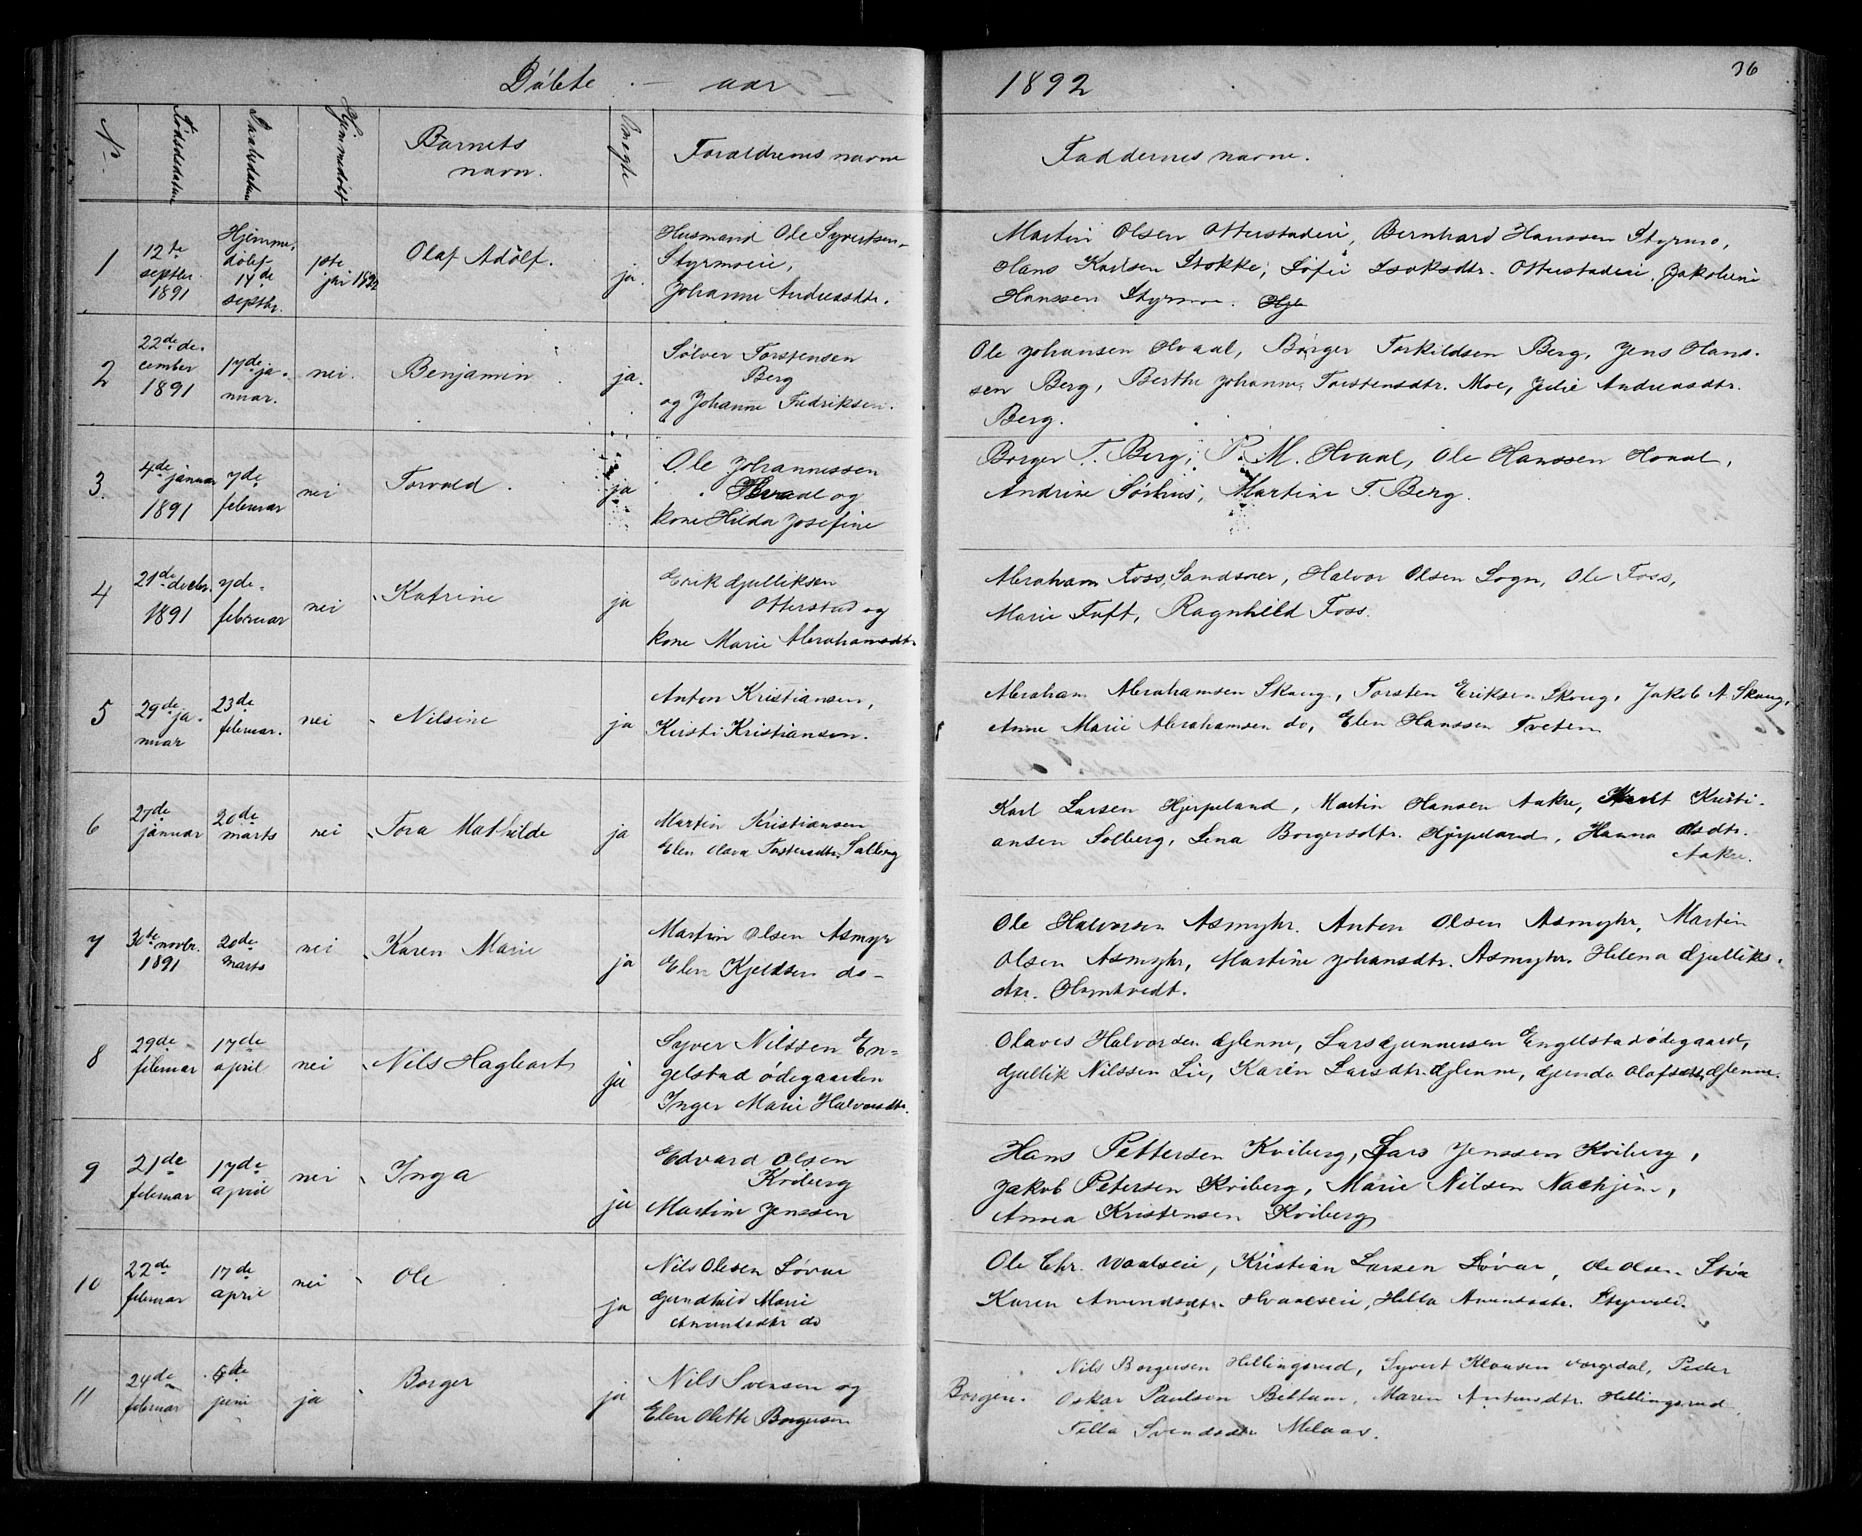 Döbte — aar 1892
36
No. Födselsdatum Daabsdatum Hjemmedöbt Barnets navn. Ægte Forældrenes navne Faddernes navne.
1 12te septbr. 1891 Hjemmedöbt 14de septbr. 1ste jan 1892 Olaf Adölf. ja. Husmand Ole Syvertsen
Styrmoeie,
Johanne Andreasdtr.
Martin Olsen Otterstadeie, Bernhard Hanssen Styrmo,
Hans Karlsen Stokke, Sofie Isaksdtr. Otterstadeie, Jakobine
Hanssen Styrmoe.
2 22de december 1891 17de januar. nei. Benjamin ja. Sölver Torstensen
Berg
og Johanne Fredriksen.
Ole Johansen Hvaal, Börger Torkildsen Berg, Jens Hans-
sen Berg, Berthe Johanne Torstensdtr. Moe, Julie Andreasdtr.
Berg.
3. 4de januar 1891 7de februar nei Torvald. ja Ole Johannessen
Hvaal og
kone Hilda Josefine
Borger T. Berg, P. M. Hvaal, Ole Hanssen Hvaal,
Andrine Sörhus, Martine T. Berg.
4 21de decbr. 1891 7de februar nei Katrine ja Erik Gulliksen
Otterstad og
kone Marie Abrahamsdtr.
Abraham Foss, Sandsver, Halvor Olsen Sogn, Ole Foss,
Marie Tuft, Ragnhild Foss.
5 29de januar 23de februar. nei Nilsine ja Anton Kristiansen,
Kirsti Kristiansen.
Abraham Abrahamsen Skoug, Torsten Eriksen Skoug, Jakob A. Skoug,
Anne Marie Abrahamsen do, Elen Hanssen Tveten
6 27de januar 20de marts nei Tora Mathilde ja Martin Kristiansen
Elen Olava Torstensdtr. Solberg
Karl Larsen Hjerpeland, Martin Hansen Aakre, Kristi-
ansen Solberg, Lina Borgersdtr. Hjerpeland, Hanna Olsdtr.
Aakre.
7 30te novbr. 1891 20de marts nei Karen Marie ja Martin Olsen Asmyr
Elen Kjeldsen do-
Ole Halvorsen Asmyhr, Anton Olsen Asmyhr, Martin
Olsen Asmyhr, Martine Johansdtr. Asmyhr, Helena Gulliks-
dtr. Holmtvedt.
8 29de februar 17de april nei Nils Hagbart ja Syver Nilssen En-
gelstad ödegaarden
Inger Marie Halvorsdtr.
Olaves Halvorsen Glenne, Lars Gunnersen Engelstadödegaard,
Gullik Nilssen Lie, Karen Larsdtr. Glenne, Gunda Olafsdtr. Glenne.
9 21de februar 17de april nei Inga ja Edvard Olsen
Kviberg
Martine Jenssen
Hans Pettersen Kviberg, Lars Jenssen Kviberg,
Jakob Petersen Kviberg, Marie Nilsen Nachjem,
Anna Kristensen Kviberg
10 22de februar 17de april nei Ole ja Nils Olesen Lövar
Gundhild Marie
Anundsdtr do
Ole Chr. Kristian Larsen Lövar, Ole Olsen
Karen Anundsdtr. Hvaalseie, Hella Anundsdtr.
11 24de februar 6de juni ja Borger ja Nils Svensen og
Elen Olette Borgersen
Nils Borgersen Hellingsrud, Syvert Klausen Peder
Borgen. Oskar Paulson Maren Antonsdtr. Hellingsrud,
Svendsdtr